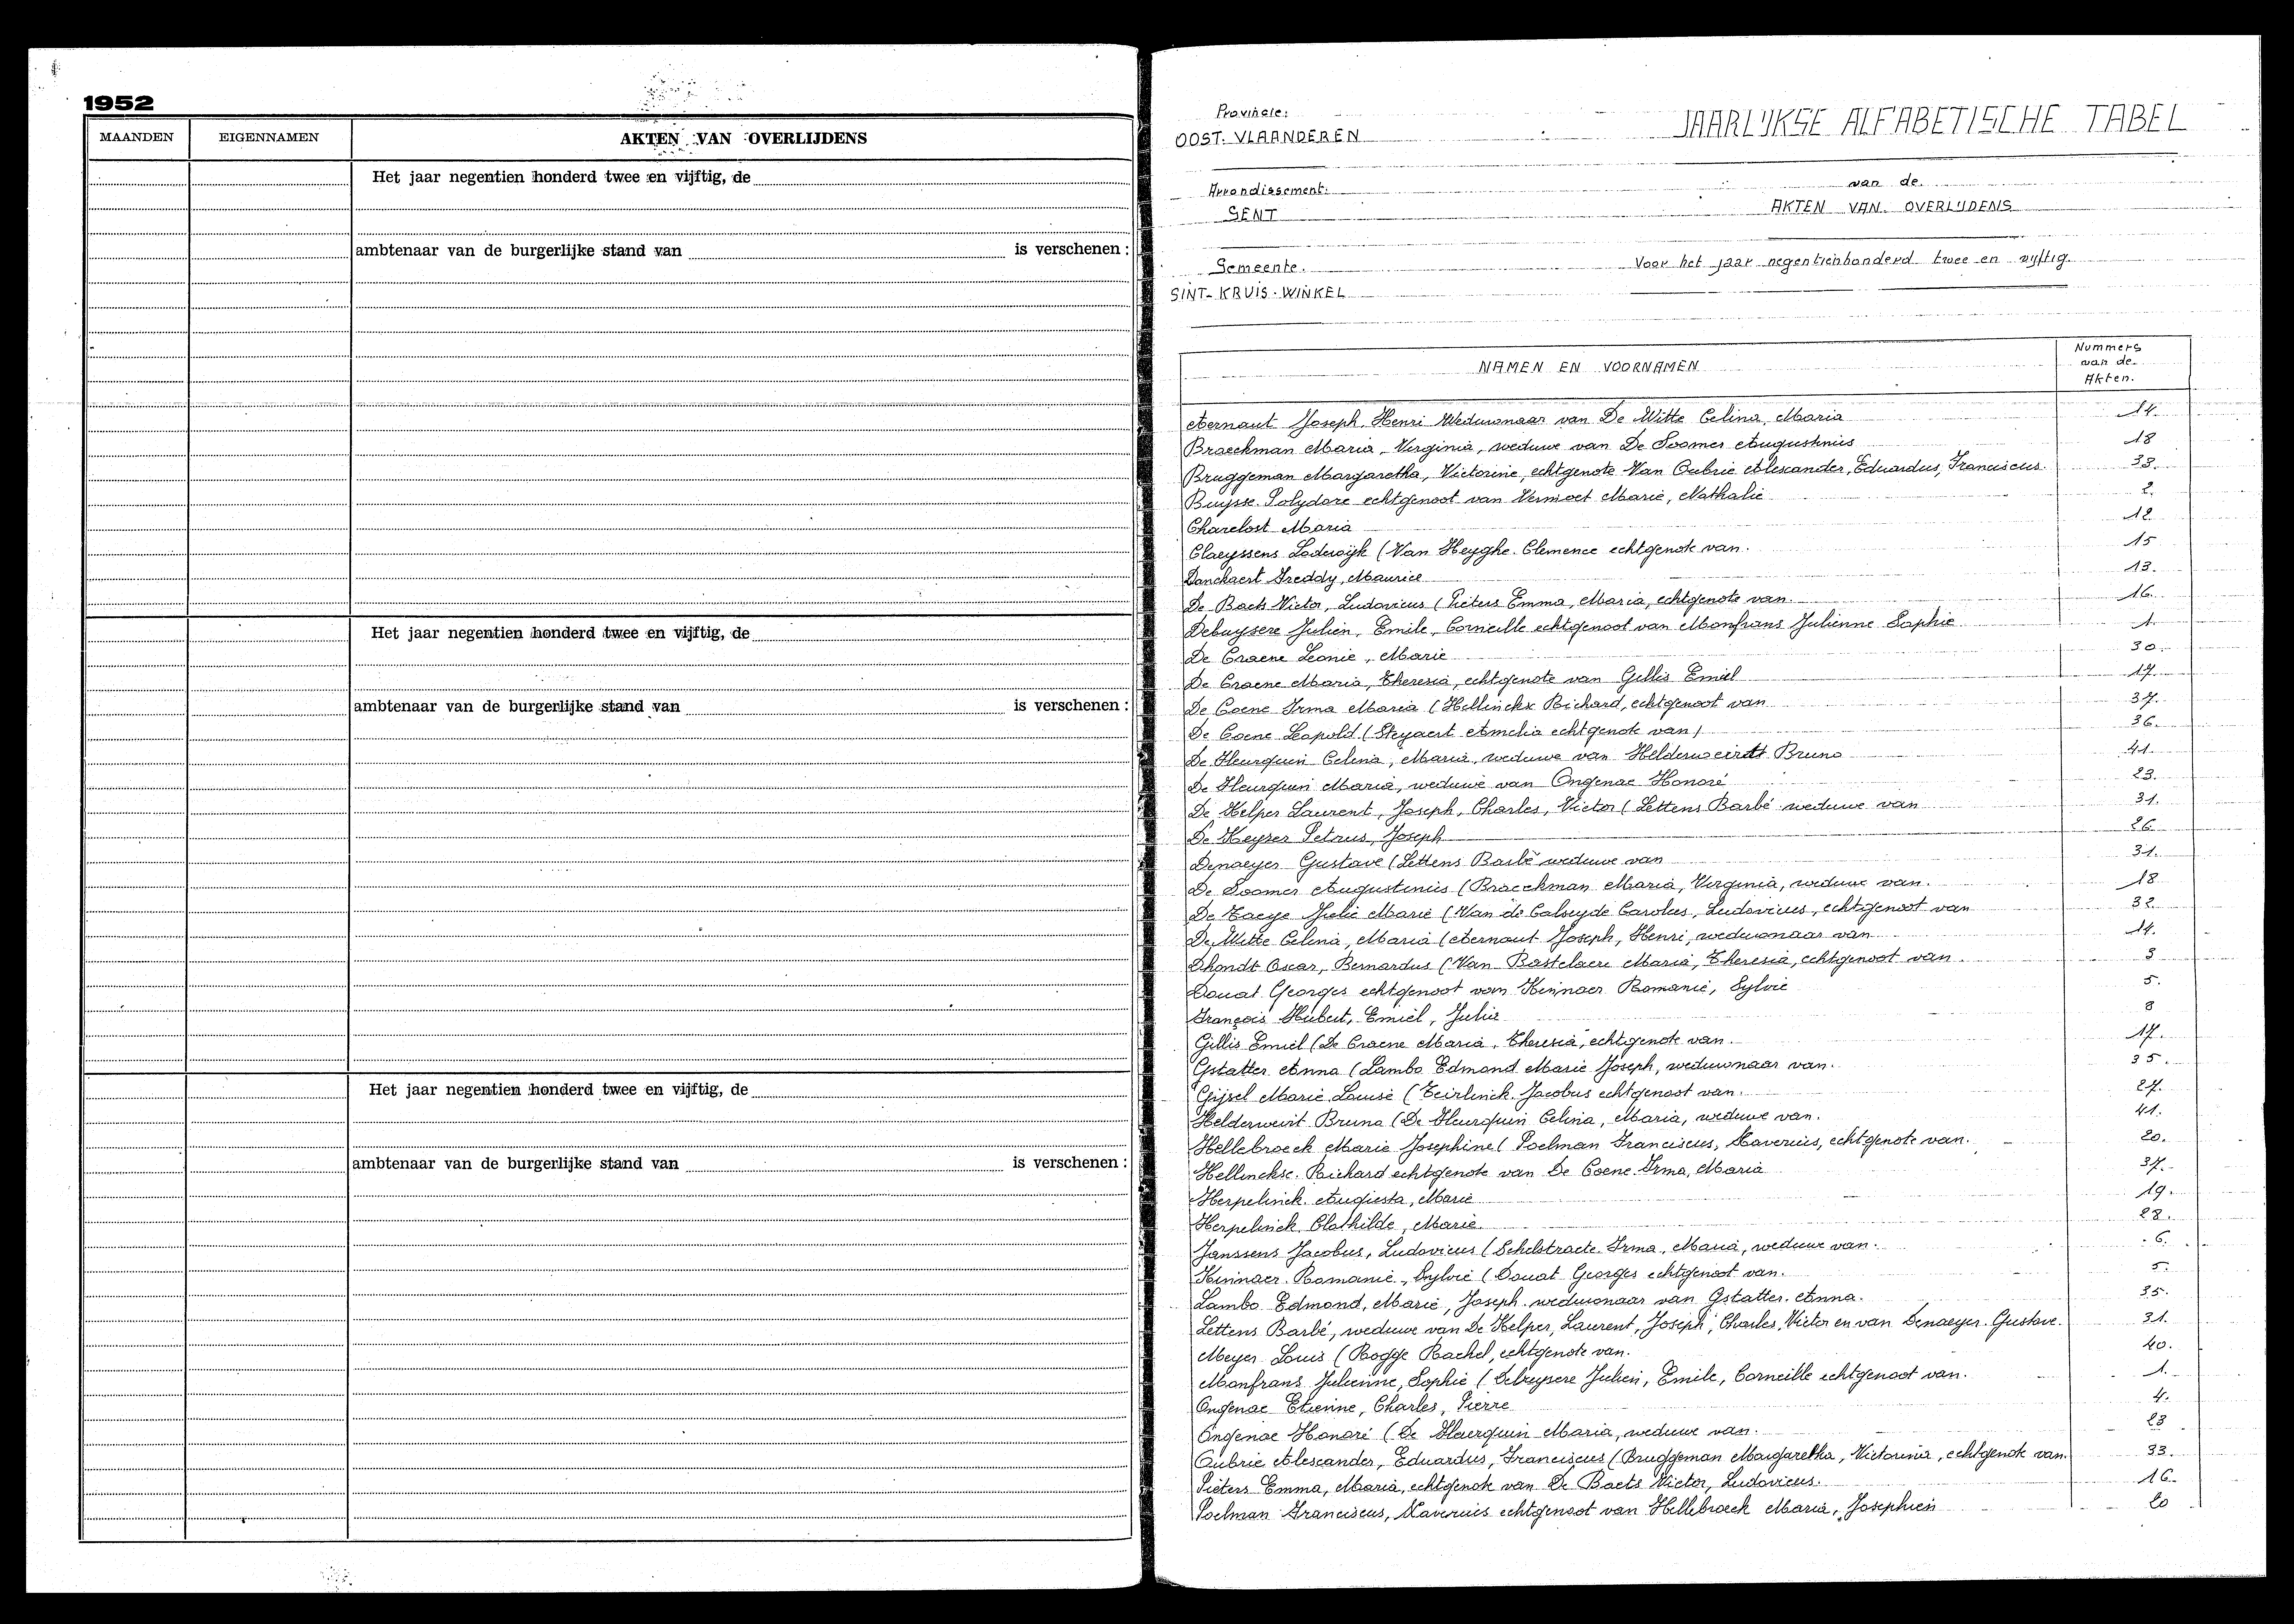 1952
MAANDEN EIGENNAMEN AKTEN VAN OVERLIJDENS
Het jaar negentien honderd twee en vijftig, de
ambtenaar van de burgerlijke stand van is verschenen :
Het jaar negentien honderd twee en vijftig, de
ambtenaar van de burgerlijke stand van is verschenen :
Het jaar negentien honderd twee en vijftig, de
ambtenaar van de burgerlijke stand van is verschenen :
Provincie:
OOST-VLAANDEREN
Arrondissement:
GENT
Gemeente.
SINT-KRUIS-WINKEL
JAARLIJKSE ALFABETISCHE TABEL
van de
AKTEN VAN OVERLIJDENS
Voor het jaar negentienhonderd twee en vyftig.
NAMEN EN VOORNAMEN Nummers van de Akten.
Aernaut Joseph, Henri Weduwnaar van De Witte Celina, Maria 14.
Braeckman Maria, Virginia, weduwe van De Soomer Augustinus 18
Bruggeman Margaretha, Victorine, echtgenote Van Oubrie Alexander, Eduardus, Franciscus. 33.
Buysse Polydore echtgenoot van Vermoet Marie, Nathalie 2.
Charelost Maria 12
Claeyssens Lodewijk (Van Heyghe Clemence echtgenote van. 15
Danckaert Freddy, Maurice 13.
De Baets Victor, Ludovicus (Pieters Emma, Maria, echtgenote van. 16.
Debuysere Julien, Emile, Corneille echtgenoot van Monfrans Julienne Sophie 1.
De Craene Leonie, Marie 30.
De Craene Maria, Theresia, echtgenote van Gillis Emiel 17.
De Coene Irma Maria (Hellinckx Richard, echtgenoot van 37.
De Coene Leopold (Steyaert Amelia echtgenote van) 36.
De Fleurquin Celina, Maria, weduwe van Helderweirdt Bruno 41.
De Fleurquin Maria, weduwe van Ongenae Honoré 23.
De Helper Laurent, Joseph, Charles, Victor (Lettens Barbé weduwe van 31.
De Keyzer Petrus, Joseph 26.
Denaeyer Gustave (Lettens Barbé weduwe van 31.
De Soomer Augustinus (Braeckman Maria, Virginia, weduwe van. 18
De Taeye Julie Marie (Van de Calseyde Carolus, Ludovicus, echtgenoot van 32
De Witte Celina, Maria (Aernaut Joseph, Henri, weduwnaar van 14.
Dhondt Oscar, Bernardus (Van Bastelaere Maria, Theresia, echtgenoot van. 3
Douat Georges echtgenoot van Kinnaer Romanie, Sylvie 5.
François Hubert, Emiel, Julia 8
Gillis Emiel (De Craene Maria, Theresia, echtgenote van. 17.
Gstatter Anna (Lambo Edmond Marie Joseph, weduwnaar van. 35.
Gijsel Marie Louise (Teirlinck Jacobus echtgenoot van. 27.
Helderweirt Bruno (De Fleurquin Celina, Maria, weduwe van. 41.
Hellebroeck Marie Josephine (Poelman Franciscus, Xaverius, echtgenote van. 20.
Hellinckx. Richard echtgenote van De Coene Irma, Maria 37.
Herpelinck Augusta, Marie 19.
Herpelinck Clothilde, Marie 28.
Janssens Jacobus, Ludovicus (Schelstraete Irma, Maria, weduwe van. 6.
Kinnaer Romanie, Sylvie (Douat Georges echtgenoot van. 5.
Lambo Edmond, Marie, Joseph weduwnaar van Gstatter Anna. 35.
Lettens Barbé, weduwe van De Helper, Laurent, Joseph, Charles, Victor en van Denaeyer Gustave. 31.
Meyer Louis (Rogge Rachel, echtgenote van. 40.
Monfrans Julienne, Sophie (Debuysere Julien, Emile, Corneille echtgenoot van. 1.
Ongenae Etienne, Charles, Pierre 4.
Ongenae Honoré (De Fleurquin Maria, weduwe van. 23
Oubrie Alexander, Eduardus, Franciscus (Bruggeman Margaretha, Victorina, echtgenote van. 33.
Pieters Emma, Maria, echtgenote van De Baets Victor, Ludovicus. 16.
Poelman Franciscus, Xaverius echtgenoot van Hellebroeck Maria, Josephien 20